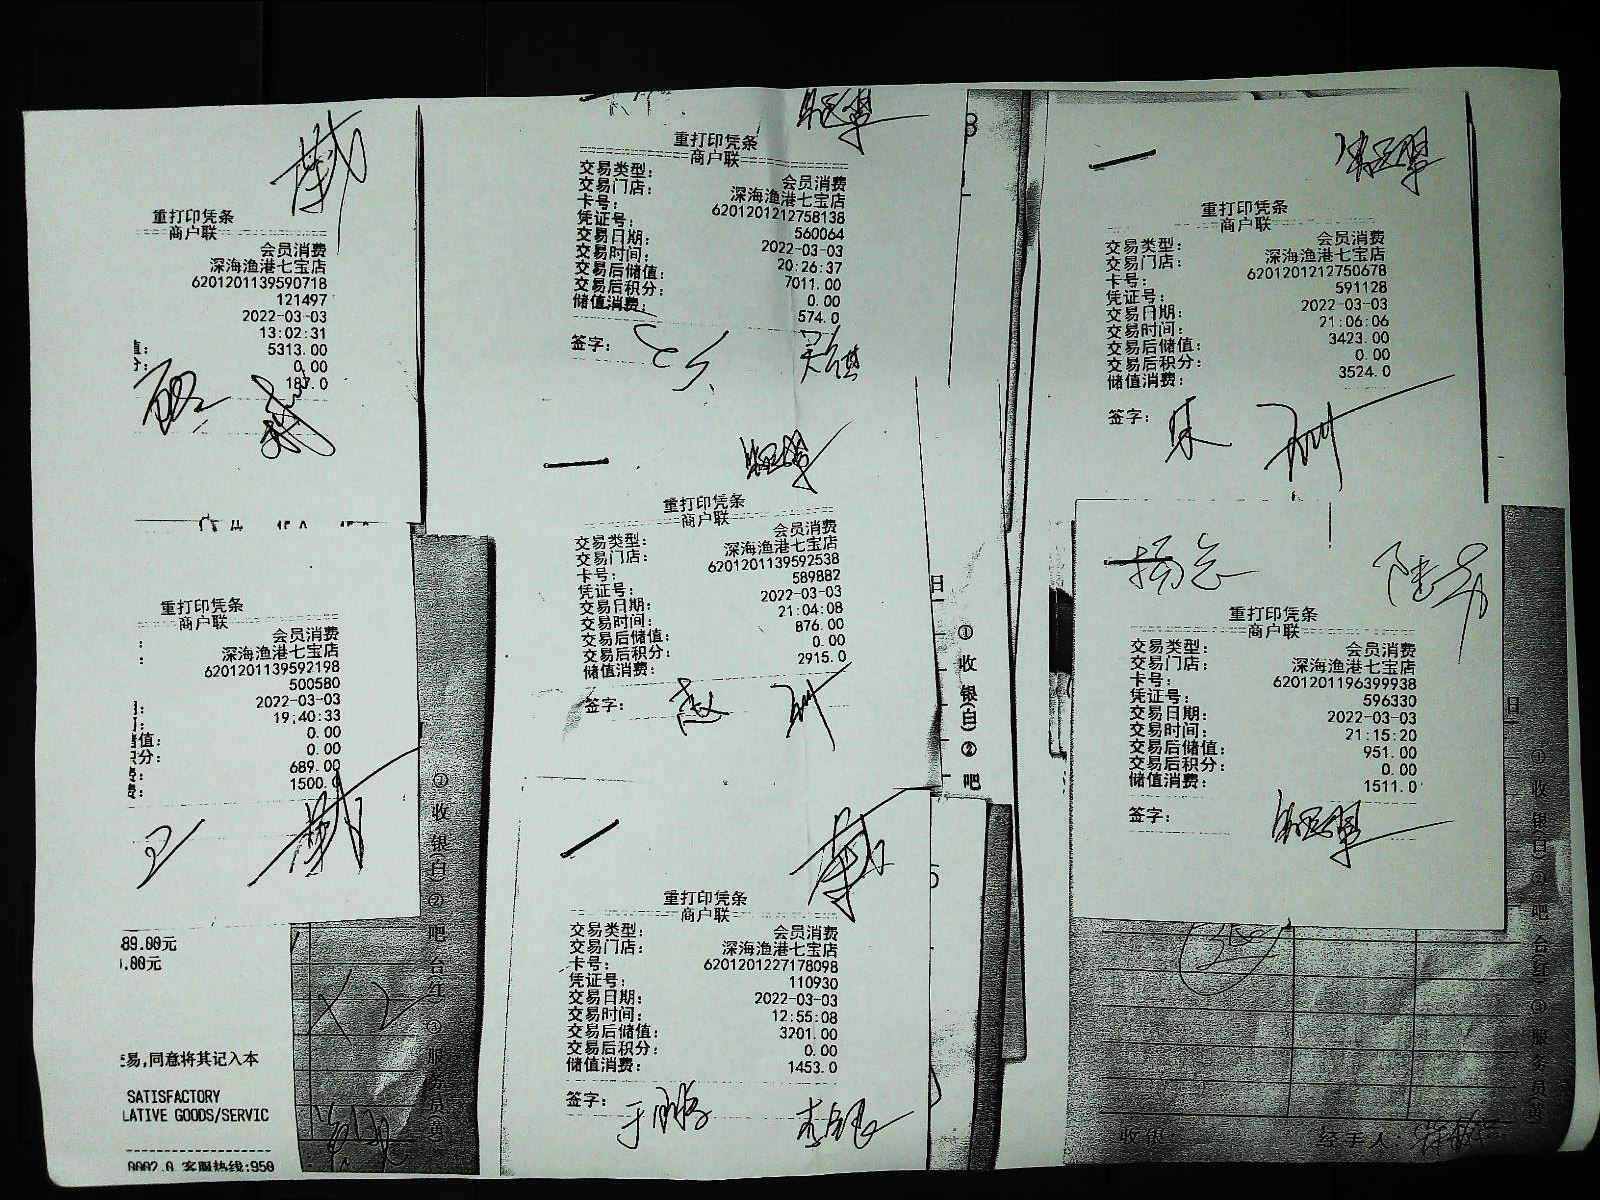 重打印凭条
商户联
会员消费
深海渔港七宝店
6201201139590718
121497
2022-03-03
13:02:31
值: 5313.00
0.00
187.0
重打印凭条
商户联
交易类型: 会员消费
交易门店: 深海渔港七宝店
卡号: 6201201212758138
凭证号: 560064
交易日期: 2022-03-03
交易时间: 20:26:37
交易后储值: 7011.00
交易后积分: 0.00
储值消费: 574.0
签字:
重打印凭条
商户联
交易类型: 会员消费
交易门店: 深海渔港七宝店
卡号: 6201201212750678
凭证号: 591128
交易日期: 2022-03-03
交易时间: 21:06:06
交易后储值: 3423.00
交易后积分: 0.00
储值消费: 3524.0
签字: 朱
重打印凭条
商户联
会员消费
深海渔港七宝店
6201201139592198
500580
2022-03-03
19:40:33
储值: 0.00
积分: 0.00
费: 689.00
费: 1500.0
王
重打印凭条
商户联
交易类型: 会员消费
交易门店: 深海渔港七宝店
卡号: 6201201139592538
凭证号: 589882
交易日期: 2022-03-03
交易时间: 21:04:08
交易后储值: 876.00
交易后积分: 0.00
储值消费: 2915.0
签字: 赵
重打印凭条
商户联
交易类型: 会员消费
交易门店: 深海渔港七宝店
卡号: 6201201196399938
凭证号: 596330
交易日期: 2022-03-03
交易时间: 21:15:20
交易后储值: 951.00
交易后积分: 0.00
储值消费: 1511.0
签字:
重打印凭条
商户联
交易类型: 会员消费
交易门店: 深海渔港七宝店
卡号: 6201201227178098
凭证号: 110930
交易日期: 2022-03-03
交易时间: 12:55:08
交易后储值: 3201.00
交易后积分: 0.00
储值消费: 1453.0
签字:
89.00元
.00元
易,同意将其记入本
SATISFACTORY
LATIVE GOODS/SERVIC
0002.0 客服热线:950
①收银(白) ②吧台(红) ③服务员(黄)
日
①收银(白) ②吧
日
①收银(白) ②吧台(红) ③服务员(黄)
收银:
经手人: